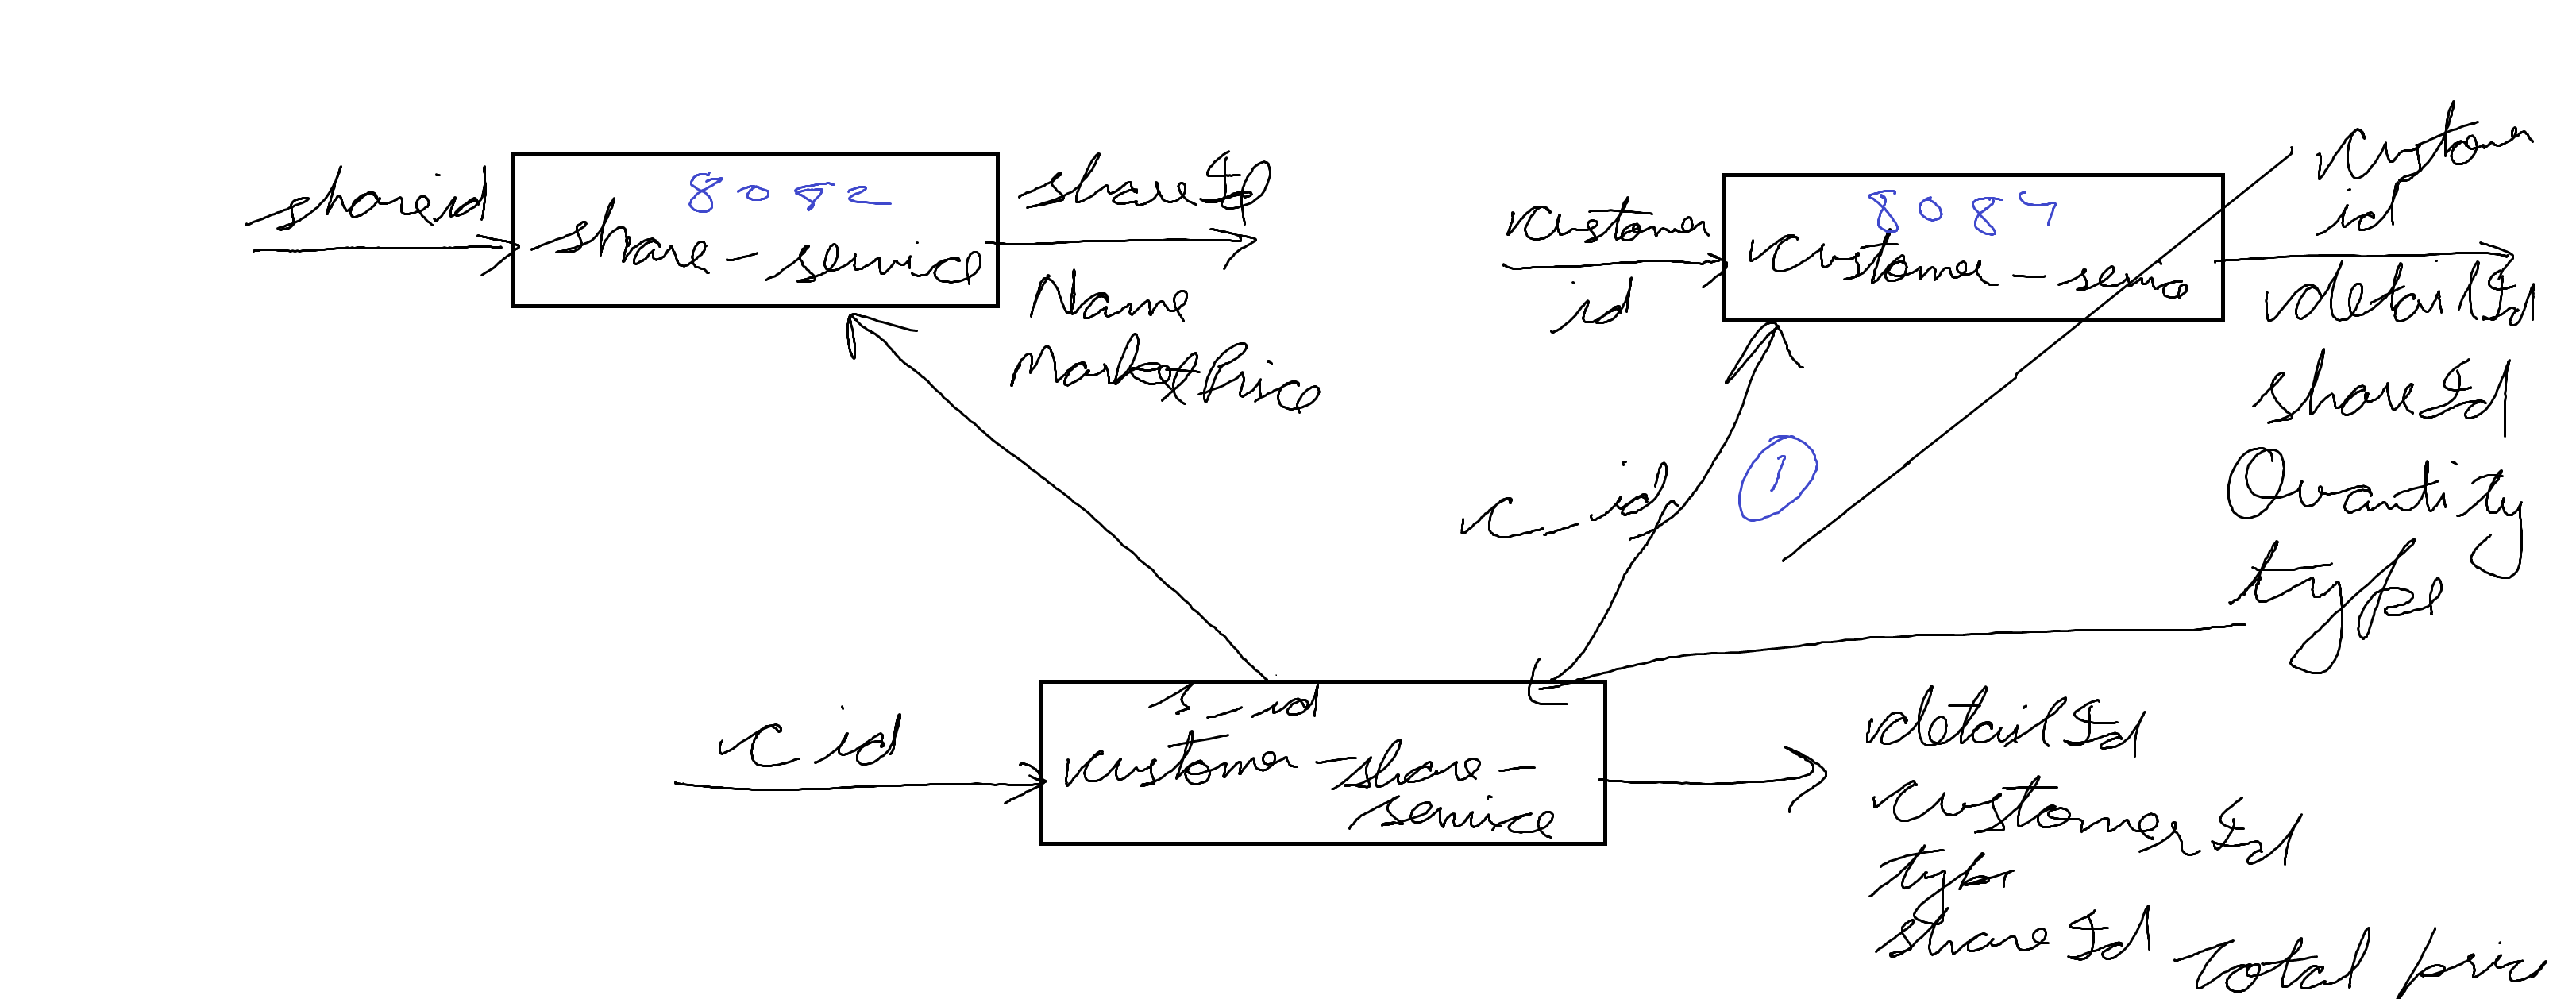 shareid
8082
share-service
shareId
Name
MarketPrice
customer
id
8084
customer-service
customer
id
detailId
shareId
Quantity
type
c_id
1
c id
s_id
customer-share-
service
detailId
customerId
type
shareId
Total price